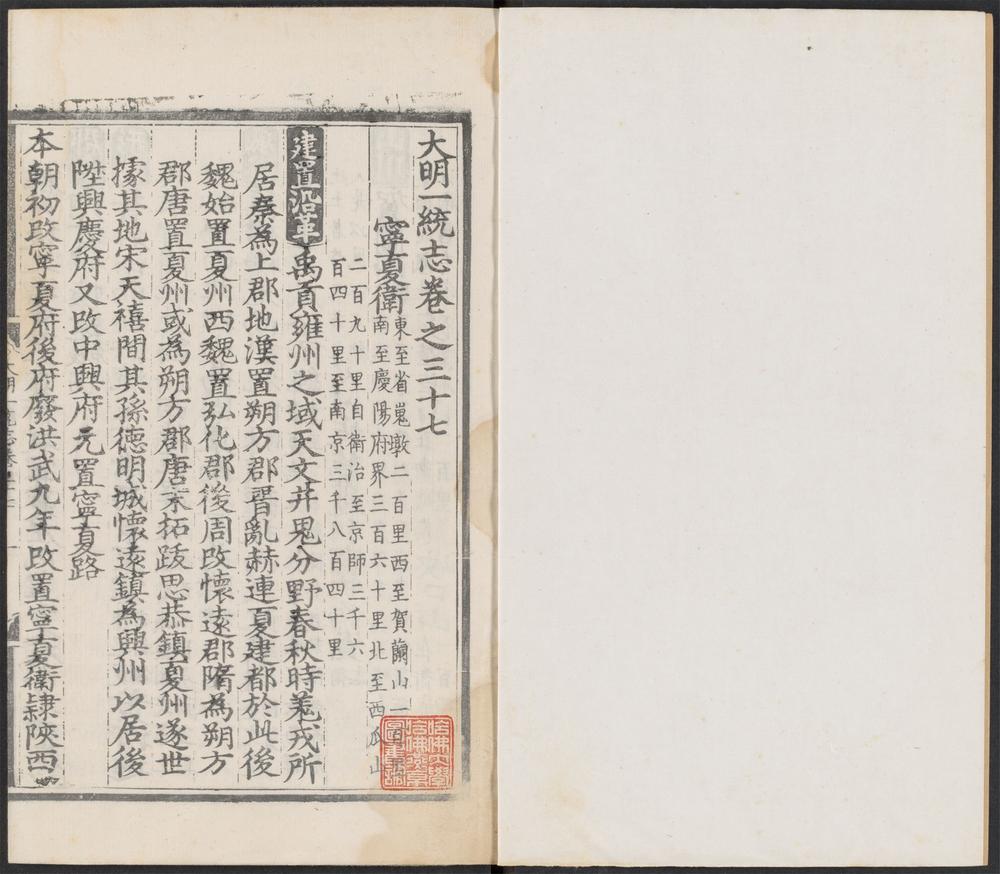 大明一統志卷之三十七
寧夏衛
東至省嵬墩二百里西至賀蘭山一百里
南至慶陽府界三百六十里北至西瓜山
二百九十里自衛治至京師三千六
百四十里至南京三千八百四十里
建置沿革禹貢雍州之域天文井鬼分野春秋時羗戎所
居秦為上郡地漢置朔方郡晋亂赫連夏建都於此後
魏始置夏州西魏置弘化郡後周改懷遠郡隋為朔方
郡唐置夏州或為朔方郡唐末拓跋思恭鎮夏州遂世
據其地宋天禧間其孫德明城懷遠鎮為興州以居後
陞興慶府又改中興府元置寧夏路
本朝初改寧夏府後府廢洪武九年改置寧夏衛隷陝西
哈佛大學
哈佛燕京
圖書館